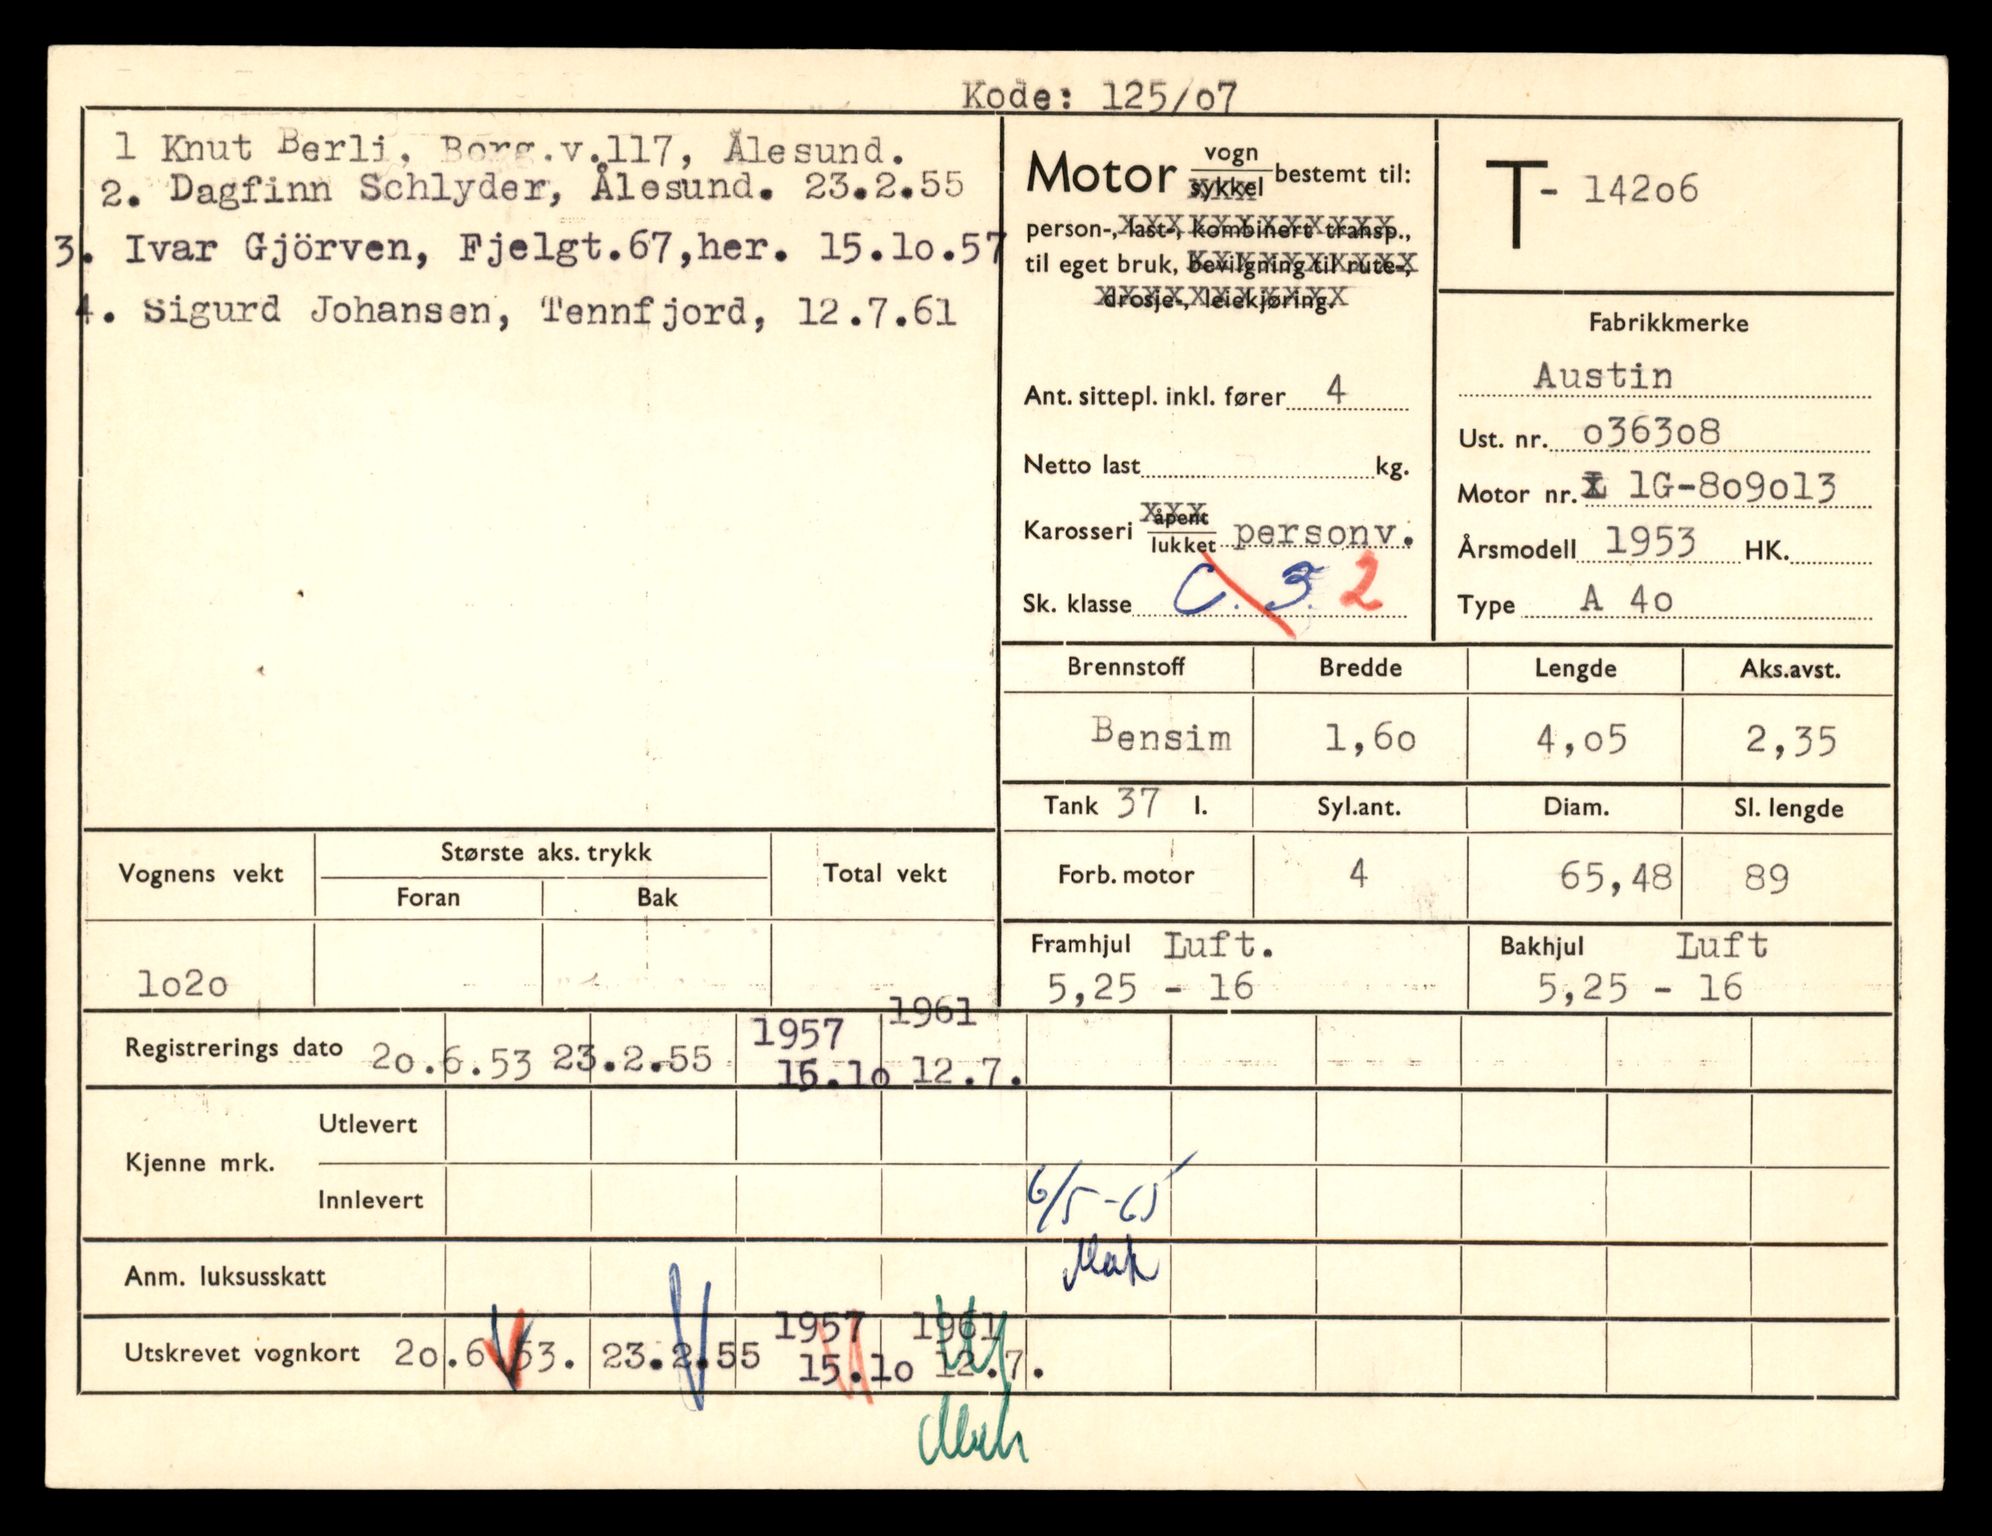 Kode: 125/o7
1 Knut Berli, Borg.v.117, Ålesund.
2. Dagfinn Schlyder, Ålesund. 23.2.55
3. Ivar Gjörven, Fjelgt.67,her. 15.1o.57
4. Sigurd Johansen, Tennfjord, 12.7.61
Motor vogn sykkel bestemt til:
person-, last-, kombinert transp.,
til eget bruk, bevilgning til rute-,
drosje-, leiekjøring.
Ant. sittepl. inkl. fører 4
Netto last kg.
Karosseri åpent lukket personv.
Sk. klasse C. 3. 2
T- 142o6
Fabrikkmerke
Austin
Ust. nr. o363o8
Motor nr. 1G-8o9o13
Årsmodell 1953 HK.
Type A 4o
Brennstoff Bredde Lengde Aks.avst.
Bensim 1,6o 4,o5 2,35
Tank 37 l. Syl.ant. Diam. Sl. lengde
Forb. motor 4 65,48 89
Framhjul Luft. Bakhjul Luft
5,25 - 16 5,25 - 16
Vognens vekt Største aks. trykk Total vekt
Foran Bak
1o2o
1957 1961
Registrerings dato 2o.6.53 23.2.55 15.1o 12.7.
Kjenne mrk.
Utlevert
Innlevert 6/5-65
Anm. luksusskatt
1957 1961
Utskrevet vognkort 2o.6.53. 23.2.55 15.1o 12.7.